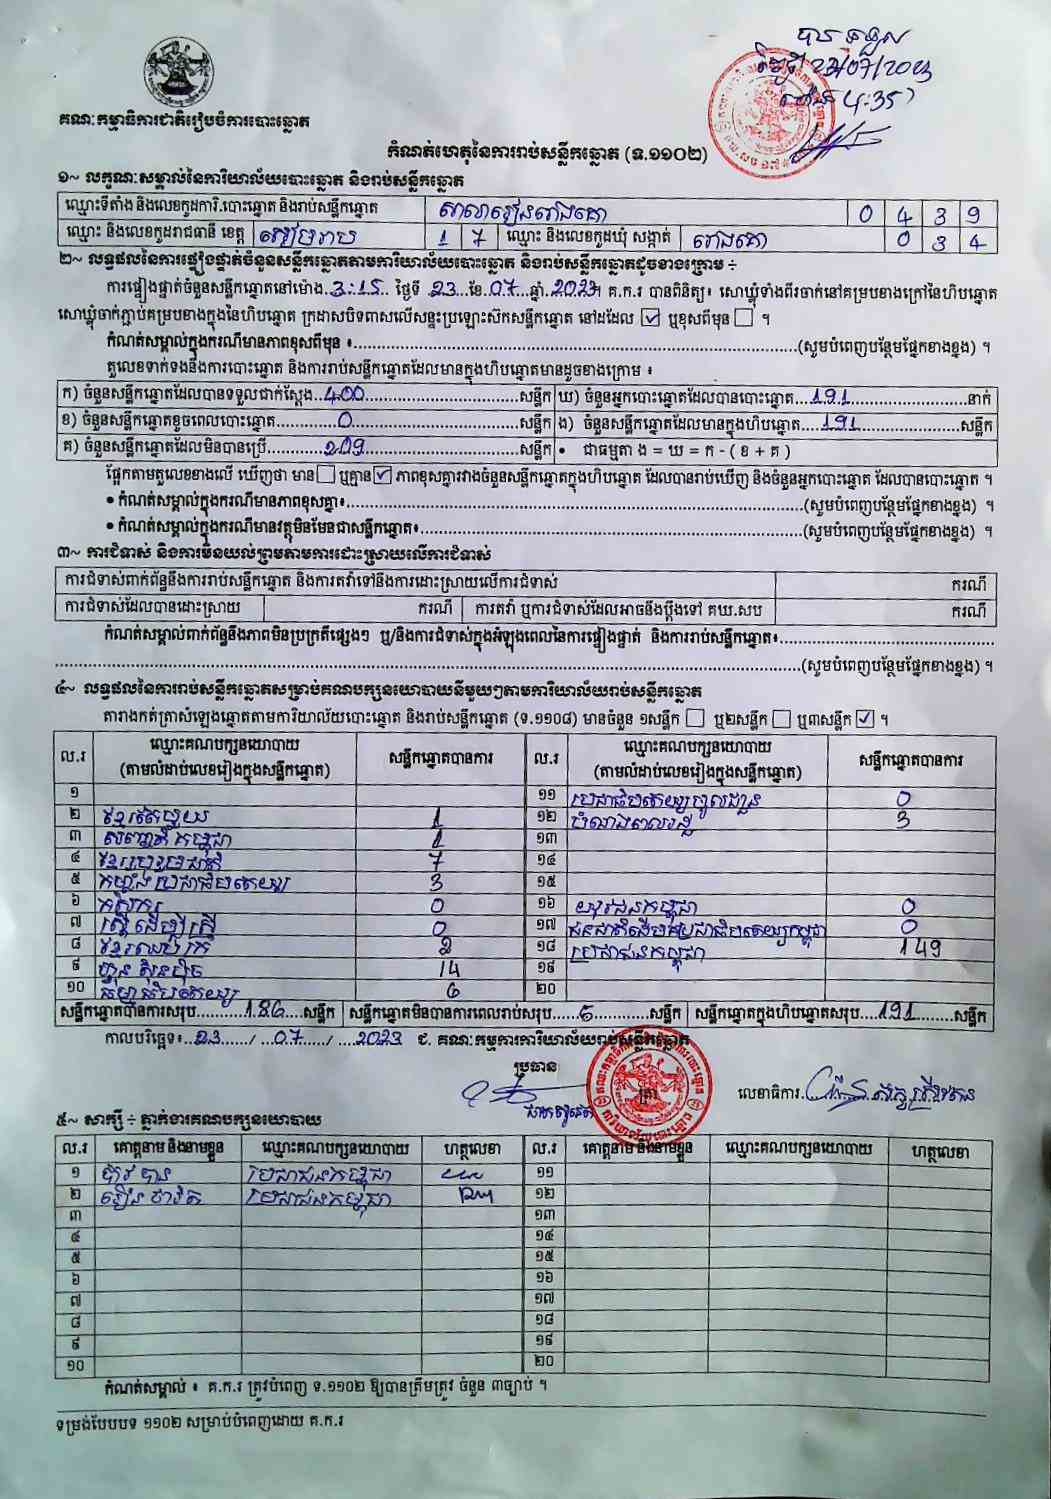 បានទទួល
ថ្ងៃទី 23/07/2023
ម៉ោង 4:35
គណៈកម្មាធិការជាតិរៀបចំការបោះឆ្នោត
កំណត់ហេតុនៃការរាប់សន្លឹកឆ្នោត (ទ.១១០២)
១~ លក្ខណៈសម្គាល់នៃការិយាល័យបោះឆ្នោត និងរាប់សន្លឹកឆ្នោត
ឈ្មោះទីតាំង និងលេខកូដការិ.បោះឆ្នោត និងរាប់សន្លឹកឆ្នោត 0 4 3 9
ឈ្មោះ និងលេខកូដរាជធានី ខេត្ត សៀមរាប 1 7 ឈ្មោះ និងលេខកូដឃុំ សង្កាត់ 0 3 4
២~ លទ្ធផលនៃការផ្ទៀងផ្ទាត់ចំនួនសន្លឹកឆ្នោតតាមការិយាល័យបោះឆ្នោត និងរាប់សន្លឹកឆ្នោតដូចខាងក្រោម ÷
ការផ្ទៀងផ្ទាត់ចំនួនសន្លឹកឆ្នោតនៅម៉ោង 3:15 ថ្ងៃទី 23 ខែ 07 ឆ្នាំ 2023។ គ.ក.រ បានពិនិត្យ៖ សោឃ្លុំទាំងពីរចាក់នៅគម្របខាងក្រៅនៃហិបឆ្នោត
សោឃ្លុំចាក់ភ្ជាប់គម្របខាងក្នុងនៃហិបឆ្នោត ក្រដាសបិទពាសលើសន្ទះប្រឡោះស៊កសន្លឹកឆ្នោត នៅដដែល ☑ ឬខុសពីមុន ☐ ។
កំណត់សម្គាល់ក្នុងករណីមានភាពខុសពីមុន ៖ (សូមបំពេញបន្ថែមផ្នែកខាងខ្នង) ។
តួលេខទាក់ទងនឹងការបោះឆ្នោត និងការរាប់សន្លឹកឆ្នោតដែលមានក្នុងហិបឆ្នោតមានដូចខាងក្រោម ៖
ក) ចំនួនសន្លឹកឆ្នោតដែលបានទទួលជាក់ស្តែង 400 សន្លឹក ឃ) ចំនួនអ្នកបោះឆ្នោតដែលបានបោះឆ្នោត 191 នាក់
ខ) ចំនួនសន្លឹកឆ្នោតខូចពេលបោះឆ្នោត 0 សន្លឹក ង) ចំនួនសន្លឹកឆ្នោតដែលមានក្នុងហិបឆ្នោត 191 សន្លឹក
គ) ចំនួនសន្លឹកឆ្នោតដែលមិនបានប្រើ 209 សន្លឹក • ជាធម្មតា ង = ឃ = ក - ( ខ + គ )
ផ្អែកតាមតួលេខខាងលើ ឃើញថា មាន ☐ ឬគ្មាន ☑ ភាពខុសគ្នារវាងចំនួនសន្លឹកឆ្នោតក្នុងហិបឆ្នោត ដែលបានរាប់ឃើញ និងចំនួនអ្នកបោះឆ្នោត ដែលបានបោះឆ្នោត ។
• កំណត់សម្គាល់ក្នុងករណីមានភាពខុសគ្នា៖ (សូមបំពេញបន្ថែមផ្នែកខាងខ្នង) ។
• កំណត់សម្គាល់ក្នុងករណីមានវត្ថុមិនមែនជាសន្លឹកឆ្នោត៖ (សូមបំពេញបន្ថែមផ្នែកខាងខ្នង) ។
៣~ ការជំទាស់ និងការមិនយល់ព្រមតាមការដោះស្រាយលើការជំទាស់
ការជំទាស់ពាក់ព័ន្ធនឹងការរាប់សន្លឹកឆ្នោត និងការតវ៉ាទៅនឹងការដោះស្រាយលើការជំទាស់ ករណី
ការជំទាស់ដែលបានដោះស្រាយ ករណី ការតវ៉ា ឬការជំទាស់ដែលអាចនឹងប្តឹងទៅ គឃ.សប ករណី
កំណត់សម្គាល់ពាក់ព័ន្ធនឹងភាពមិនប្រក្រតីផ្សេងៗ ឬ/និងការជំទាស់ក្នុងអំឡុងពេលនៃការផ្ទៀងផ្ទាត់ និងការរាប់សន្លឹកឆ្នោត៖
(សូមបំពេញបន្ថែមផ្នែកខាងខ្នង) ។
៤~ លទ្ធផលនៃការរាប់សន្លឹកឆ្នោតសម្រាប់គណបក្សនយោបាយនីមួយៗតាមការិយាល័យរាប់សន្លឹកឆ្នោត
តារាងកត់ត្រាសំឡេងឆ្នោតតាមការិយាល័យបោះឆ្នោត និងរាប់សន្លឹកឆ្នោត (ទ.១១០៨) មានចំនួន ១សន្លឹក ☐ ឬ២សន្លឹក ☐ ឬ៣សន្លឹក ☑ ។
ល.រ ឈ្មោះគណបក្សនយោបាយ (តាមលំដាប់លេខរៀងក្នុងសន្លឹកឆ្នោត) សន្លឹកឆ្នោតបានការ ល.រ ឈ្មោះគណបក្សនយោបាយ (តាមលំដាប់លេខរៀងក្នុងសន្លឹកឆ្នោត) សន្លឹកឆ្នោតបានការ
១ ១១ 0
២ 1 ១២ 3
៣ សញ្ជាតិកម្ពុជា 1 ១៣
៤ ខ្មែររួបរួមជាតិ 7 ១៤
៥ កម្លាំងប្រជាធិបតេយ្យ 3 ១៥
៦ កសិករ 0 ១៦ យុវជនកម្ពុជា 0
៧ ស្ត្រីដើម្បីស្ត្រី 0 ១៧ ជនជាតិដើមប្រជាធិបតេយ្យកម្ពុជា 0
៨ ខ្មែរឈប់ក្រ 2 ១៨ ប្រជាជនកម្ពុជា 149
៩ ហ៊្វុនស៊ិនប៉ិច 14 ១៩
១០ ធម្មាធិបតេយ្យ 6 ២០
សន្លឹកឆ្នោតបានការសរុប 186 សន្លឹក សន្លឹកឆ្នោតមិនបានការពេលរាប់សរុប 5 សន្លឹក សន្លឹកឆ្នោតក្នុងហិបឆ្នោតសរុប 191 សន្លឹក
កាលបរិច្ឆេទ៖ 23 / 07 / 2023 ជ. គណៈកម្មការការិយាល័យរាប់សន្លឹកឆ្នោត
ប្រធាន
ត្រា
លេខាធិការ
៥~ សាក្សី ÷ ភ្នាក់ងារគណបក្សនយោបាយ
ល.រ គោត្តនាម និងនាមខ្លួន ឈ្មោះគណបក្សនយោបាយ ហត្ថលេខា ល.រ គោត្តនាម និងនាមខ្លួន ឈ្មោះគណបក្សនយោបាយ ហត្ថលេខា
១ ប្រជាជនកម្ពុជា ១១
២ ប្រជាជនកម្ពុជា ១២
៣ ១៣
៤ ១៤
៥ ១៥
៦ ១៦
៧ ១៧
៨ ១៨
៩ ១៩
១០ ២០
កំណត់សម្គាល់ ៖ គ.ក.រ ត្រូវបំពេញ ទ.១១០២ ឱ្យបានត្រឹមត្រូវ ចំនួន ៣ច្បាប់ ។
ទម្រង់បែបបទ ១១០២ សម្រាប់បំពេញដោយ គ.ក.រ